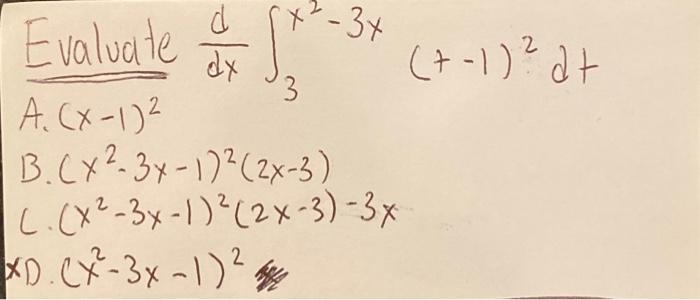 Evaluate d/dx ∫₃^(x²-3x) (t-1)² dt
A. (x-1)²
B. (x²-3x-1)²(2x-3)
C. (x²-3x-1)²(2x-3)-3x
xD. (x²-3x-1)²